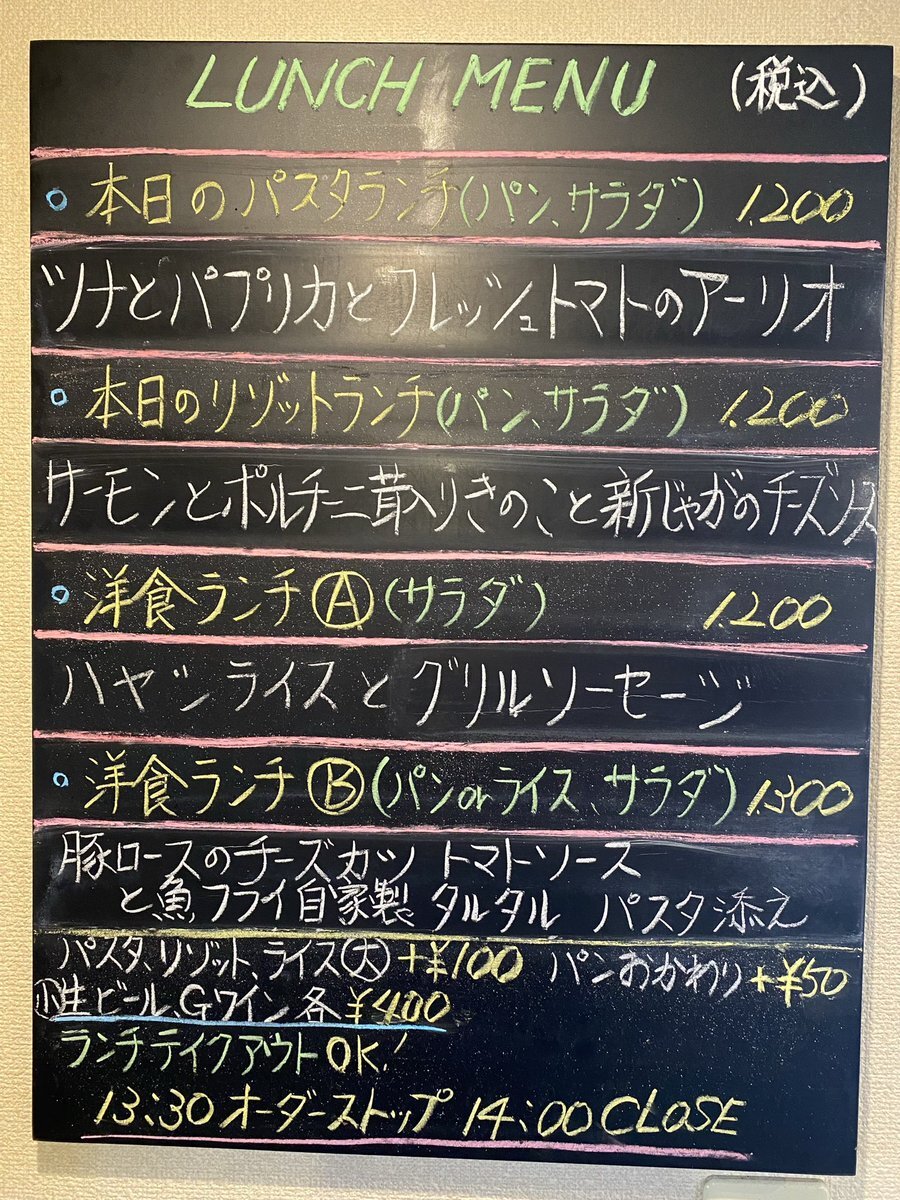 LUNCH MENU (税込)
本日のパスタランチ(パン、サラダ) 1.200
ツナとパプリカとフレッシュトマトのアーリオ
本日のリゾットランチ(パン、サラダ) 1.200
サーモンとポルチーニ茸入りきのこと新じゃがのチーズソース
洋食ランチⒶ(サラダ) 1.200
ハヤシライスとグリルソーセージ
洋食ランチⒷ(パンorライス、サラダ) 1.300
豚ロースのチーズカツ トマトソース
と魚フライ自家製タルタル パスタ添え
パスタ、リゾット、ライス㊅ +¥100 パンおかわり+¥50
小生ビール、Gワイン 各¥400
ランチテイクアウトOK!
13:30オーダーストップ 14:00 CLOSE